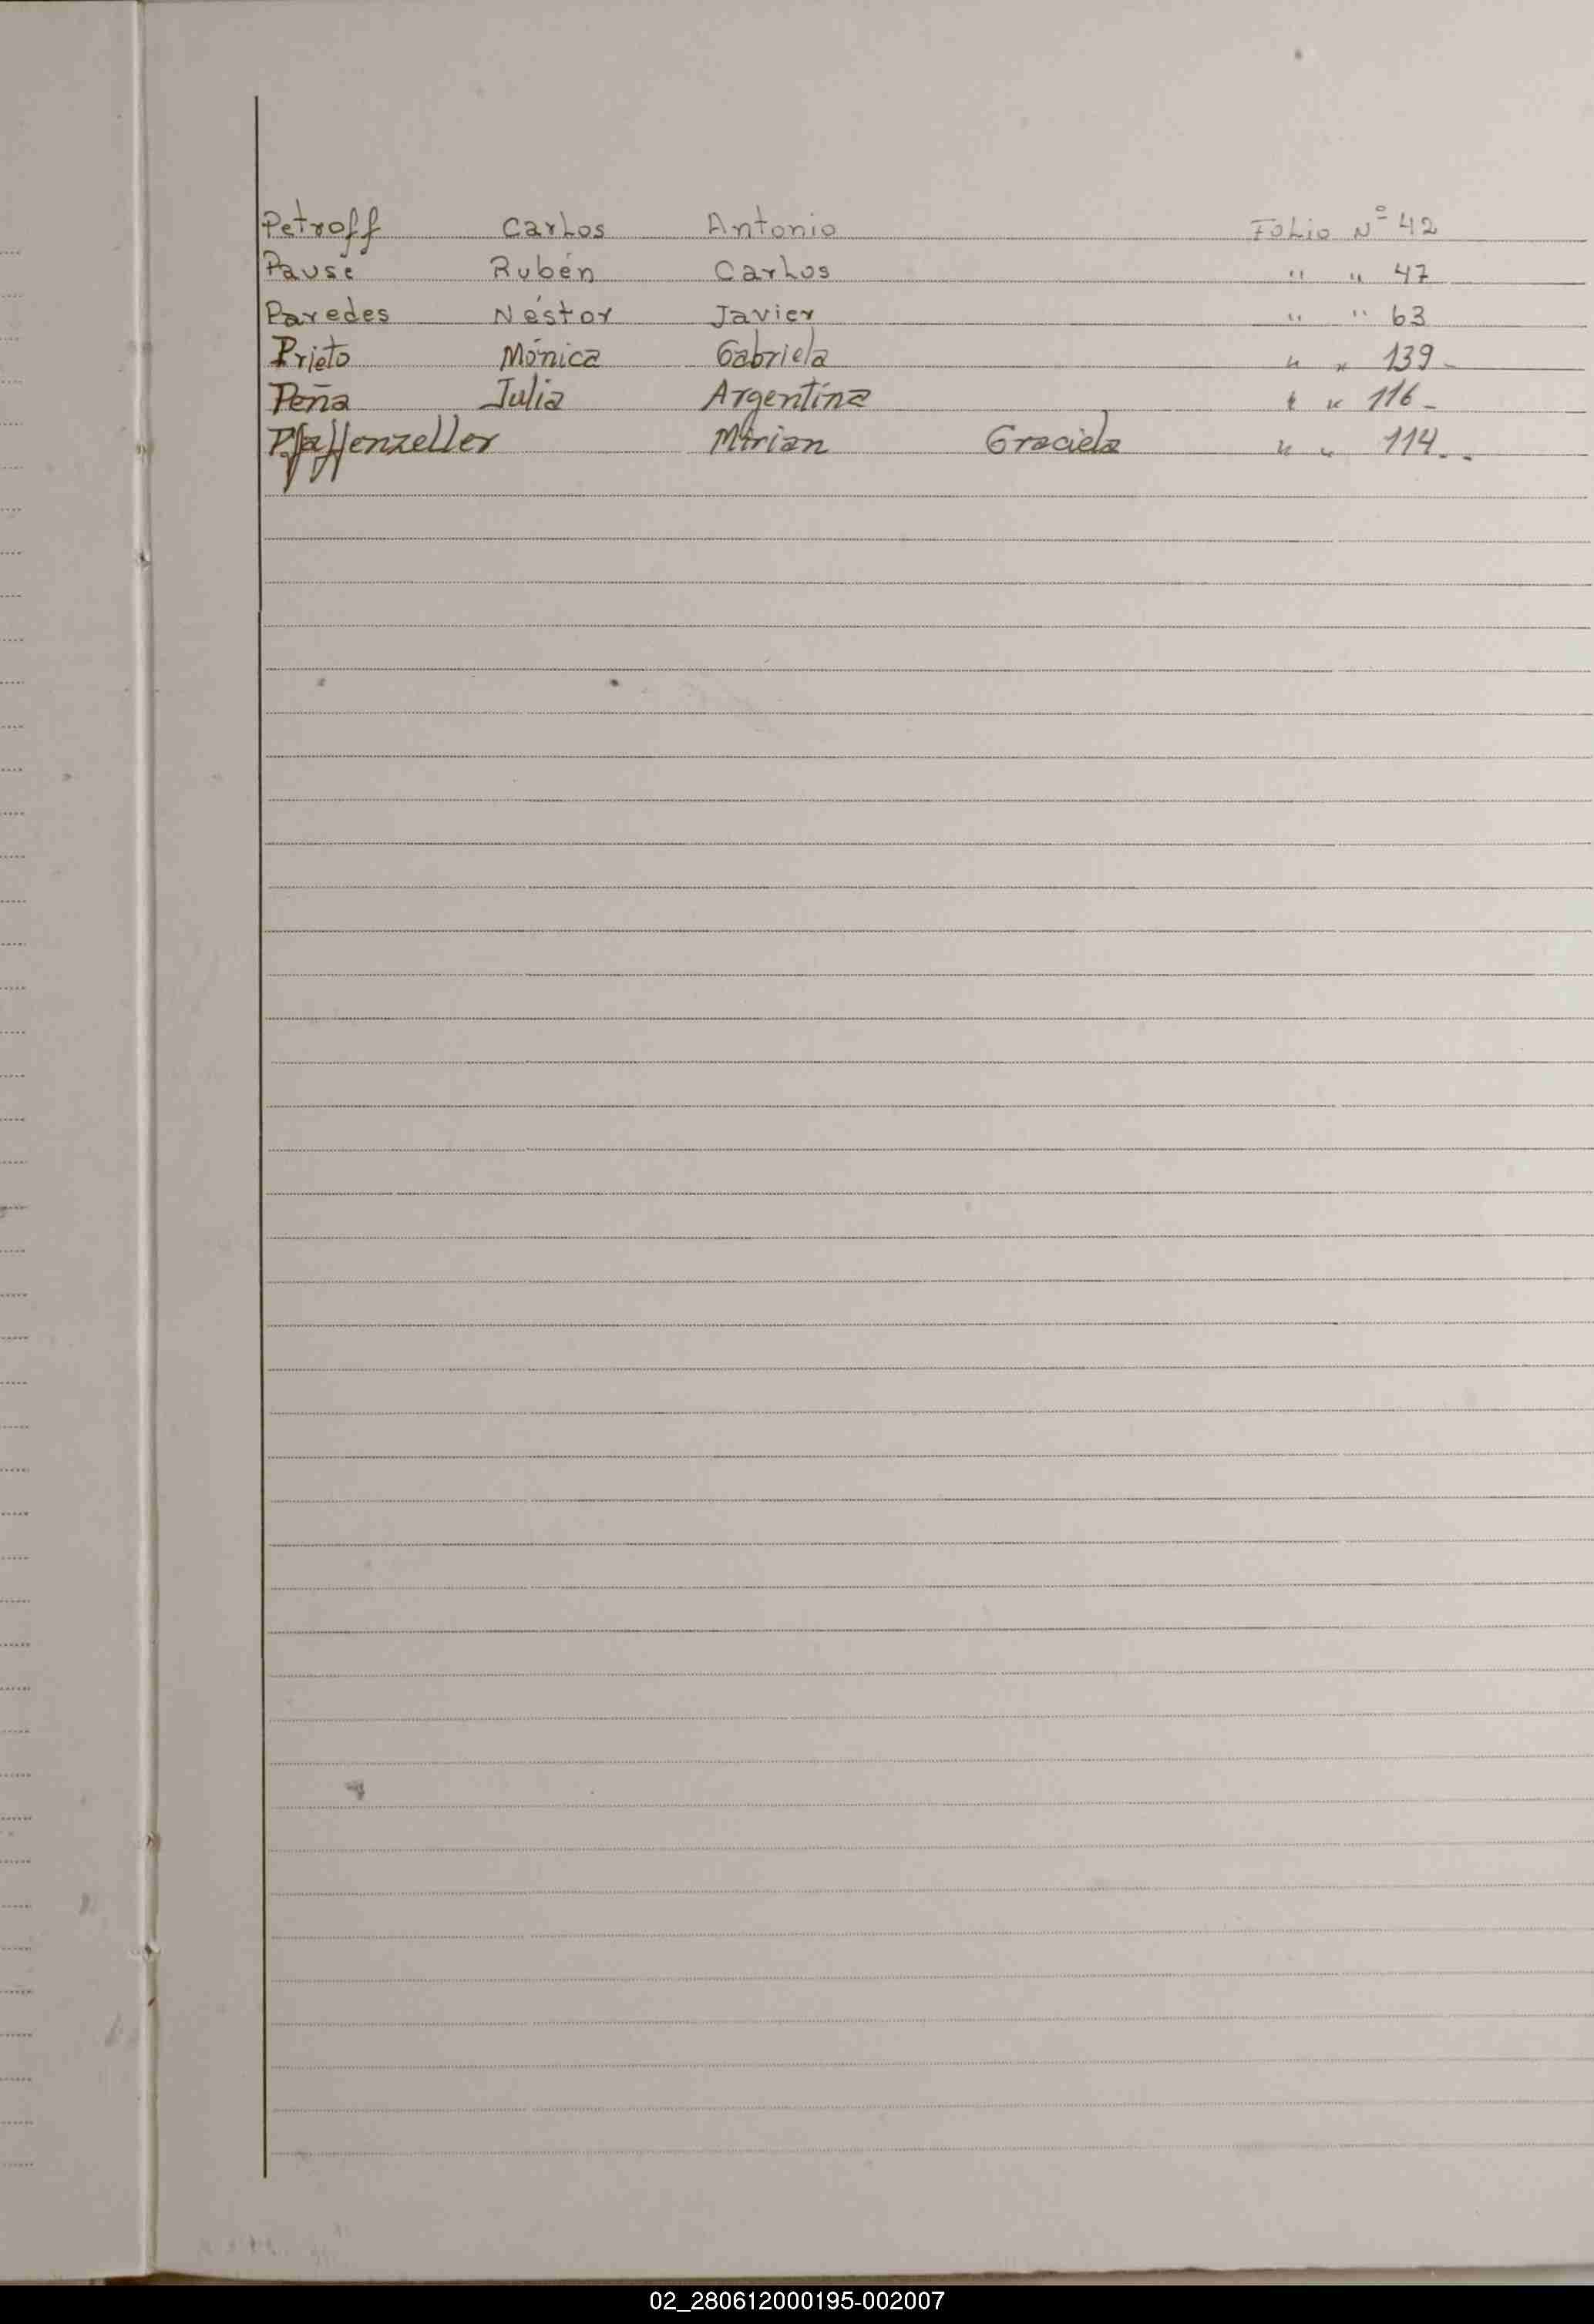 Petroff Carlos Antonio Folio Nº 42
Pause Rubén Carlos " " 47
Paredes Néstor Javier " " 63
Prieto Mónica Gabriela " " 139-
Peña Julia Argentina " " 116-
Pfaffenzeller Mirian Graciela " " 114--
02_280612000195-002007